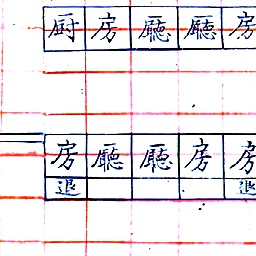 厨房廳廳房
房廳廳房房
退退